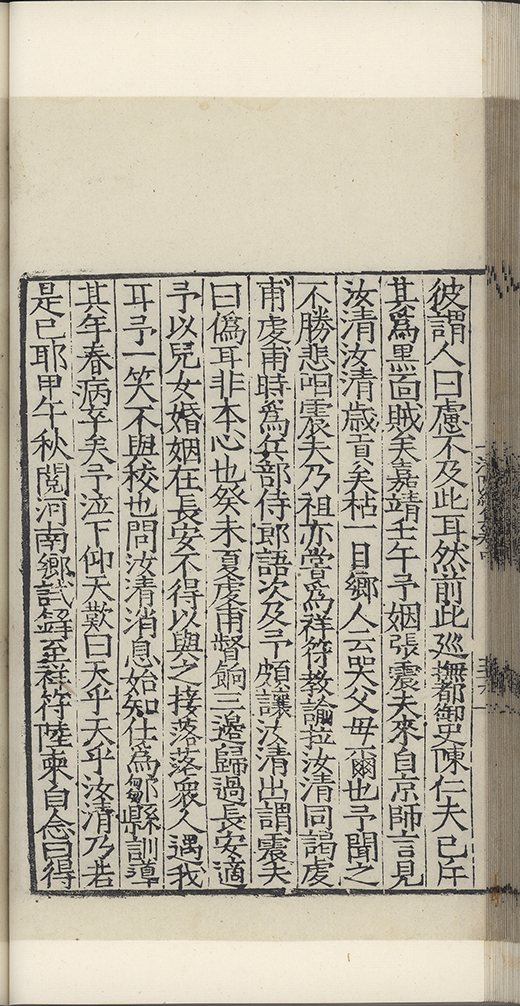 彼謂人曰慮不及此耳然前此巡撫都御史陳仁夫已斥
其爲黑面賊矣嘉靖壬午予姻張震夫來自京師言見
汝清汝清歲盲矣枯一目鄉人云哭父母爾也予聞之
不勝悲咽震夫乃祖亦嘗爲祥符教諭拉汝清同謁虔
甫虔甫時爲兵部侍郎語次及予頗讓汝清出謂震夫
曰僞耳非本心也癸未夏虔甫督餉三邊歸過長安適
予以兒女婚姻在長安不得以與之接落落衆人遇我
耳予一笑不與校也問汝清消息始知仕爲鄒縣訓導
其年春病卒矣予泣下仰天歎曰天乎天乎汝清乃若
是已耶甲午秋閱河南鄉試錄至祥符陸東自念曰得